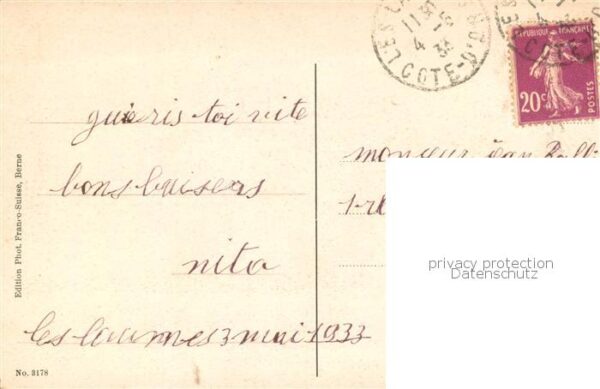 gueris toi vite
bons baisers
nita
les laumes 3 mai 1933
Edition Phot. Franco-Suisse, Berne
No. 3178
monsieur jean
11 30
4 5
COTE-D'OR
REPUBLIQUE FRANÇAISE
20c
POSTES
COTE-D'
privacy protection
Datenschutz